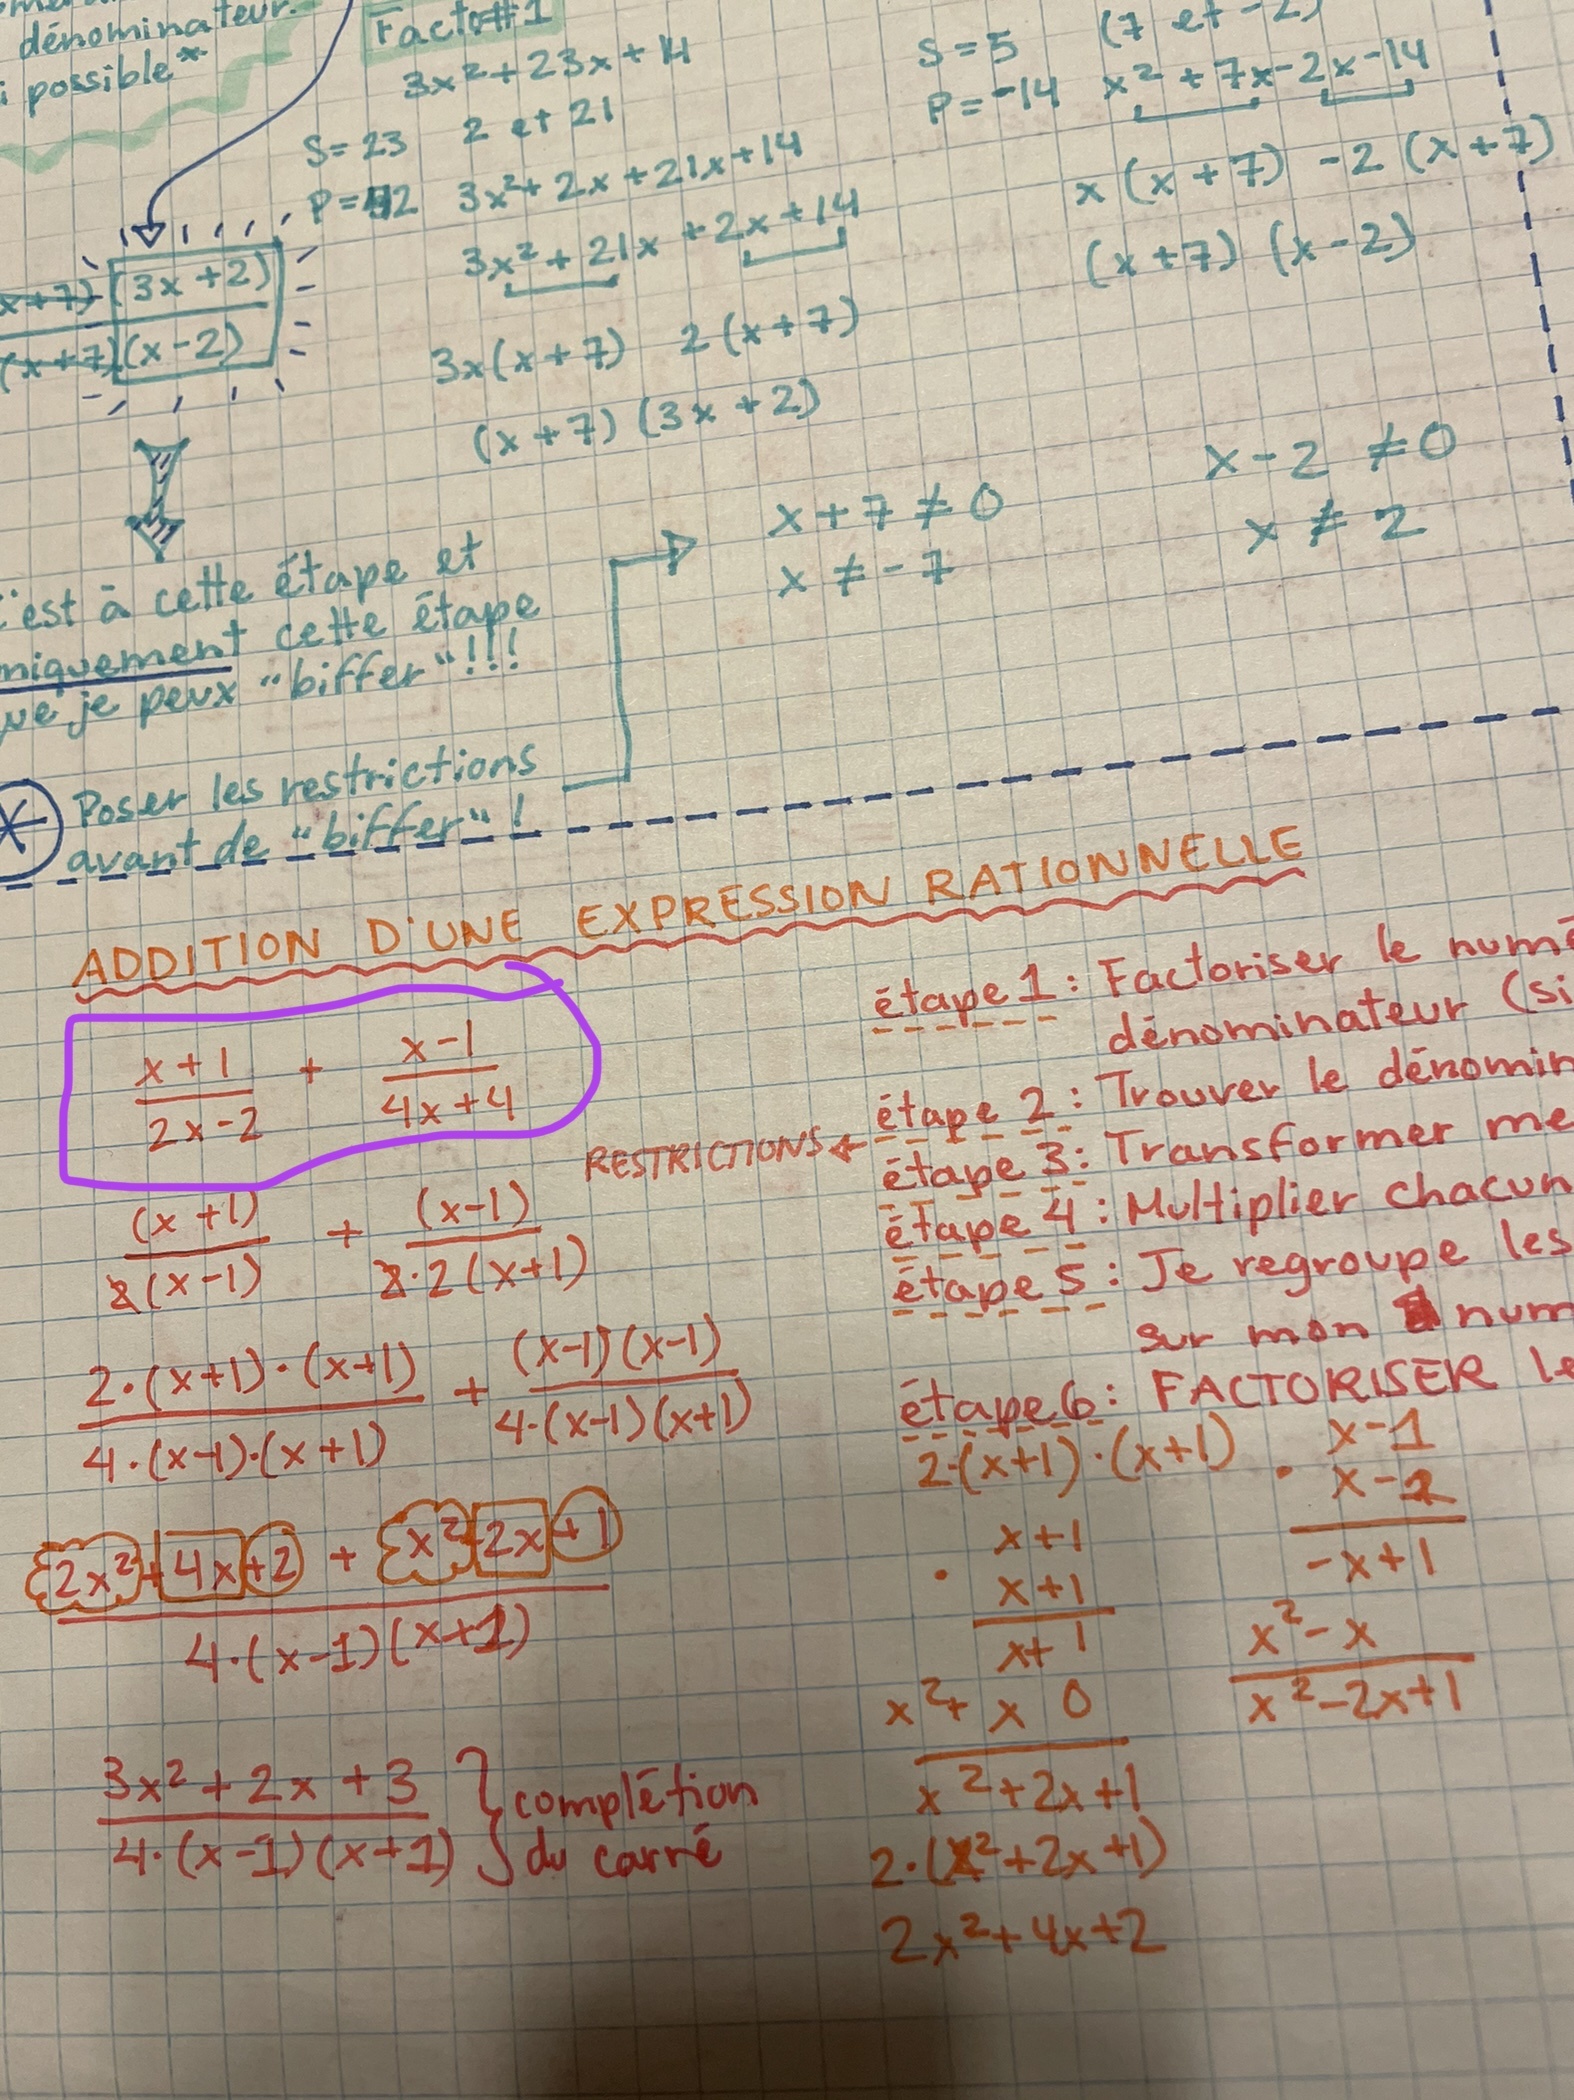 dénominateur.
possible*
Facto#1
3x² + 23x + 14
S = 23 2 et 21
P = 42 3x² + 2x + 21x + 14
3x² + 21x + 2x + 14
3x(x + 7) 2(x + 7)
(x + 7) (3x + 2)
S = 5 (7 et -2)
P = -14 x² + 7x - 2x - 14
x(x + 7) - 2(x + 7)
(x + 7) (x - 2)
x+7) (3x + 2)
(x+7) (x - 2)
c'est à cette étape et
niquement cette étape
ue je peux "biffer"!!!
Poser les restrictions
avant de "biffer"!
x + 7 ≠ 0
x ≠ -7
x - 2 ≠ 0
x ≠ 2
ADDITION D'UNE EXPRESSION RATIONNELLE
x + 1 + x - 1
2x - 2 4x + 4
(x + 1) + (x - 1)
2(x - 1) 2·2(x + 1)
2·(x+1)·(x+1) + (x-1)(x-1)
4·(x-1)·(x+1) 4·(x-1)(x+1)
2x² + 4x + 2 + x² - 2x + 1
4·(x-1)(x+1)
3x² + 2x + 3 } complétion
4·(x-1)(x+1) du carré
RESTRICTIONS ←
étape 1 : Factoriser le numé
dénominateur (si
étape 2 : Trouver le dénomin
étape 3 : Transformer me
étape 4 : Multiplier chacun
étape 5 : Je regroupe les
sur mon num
étape 6 : FACTORISER le
2·(x+1)·(x+1)
x+1
· x+1
x+1
x² + x 0
x² + 2x + 1
2·(x² + 2x + 1)
2x² + 4x + 2
x-1
· x-1
-x+1
x² - x
x² - 2x + 1